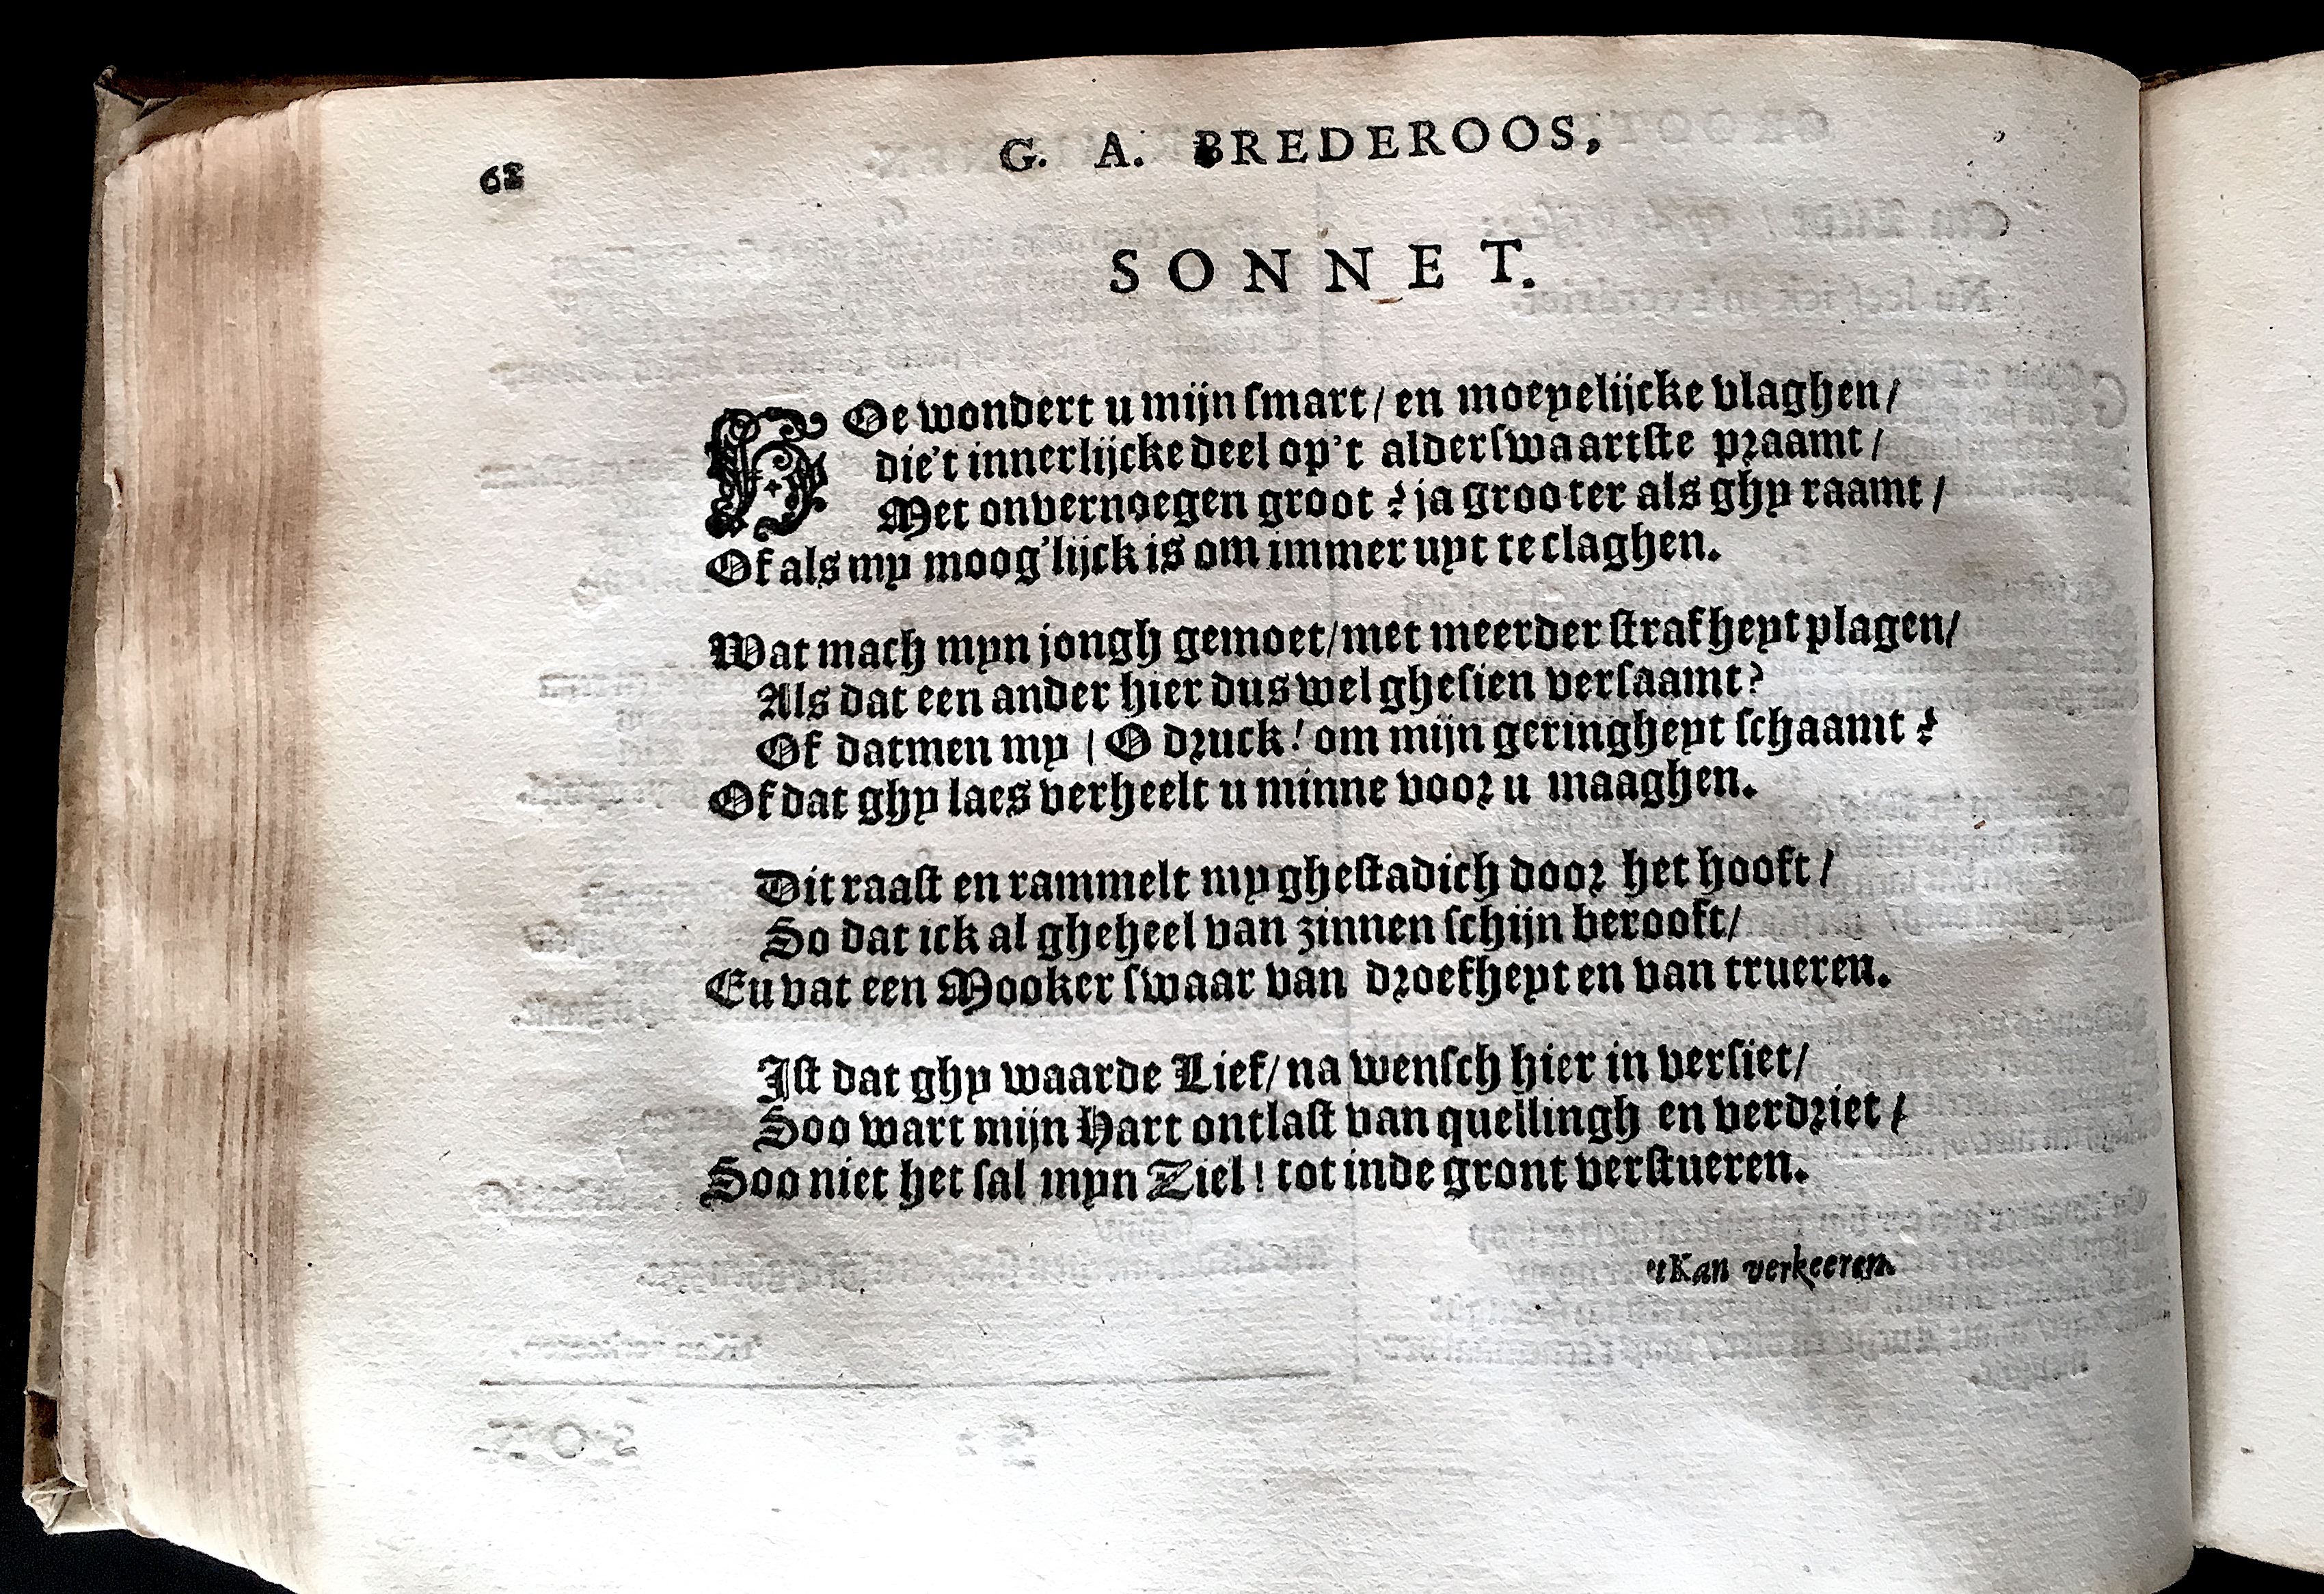 62
G. A. BREDEROOS,
SONNET.
HOe wondert u mijn smart / en moeyelijcke vlaghen /
die't innerlijcke deel op't alderswaartste praamt /
Met onvernoegen groot ? ja grooter als ghy raamt /
Of als my moog'lijck is om immer uyt te claghen.
Wat mach myn jongh gemoet / met meerder strafheyt plagen /
Als dat een ander hier dus wel ghesien versaamt?
Of datmen my / O druck! om mijn geringheyt schaamt ?
Of dat ghy laes verheelt u minne voor u maaghen.
Dit raast en rammelt my ghestadich door het hooft /
So dat ick al gheheel van zinnen schijn berooft /
En vat een Mooker swaar van droefheyt en van trueren.
Ist dat ghy waarde Lief / na wensch hier in versiet /
Soo wart mijn Hart ontlast van quellingh en verdriet /
Soo niet het sal myn Ziel! tot inde gront verstueren.
'tKan verkeeren.